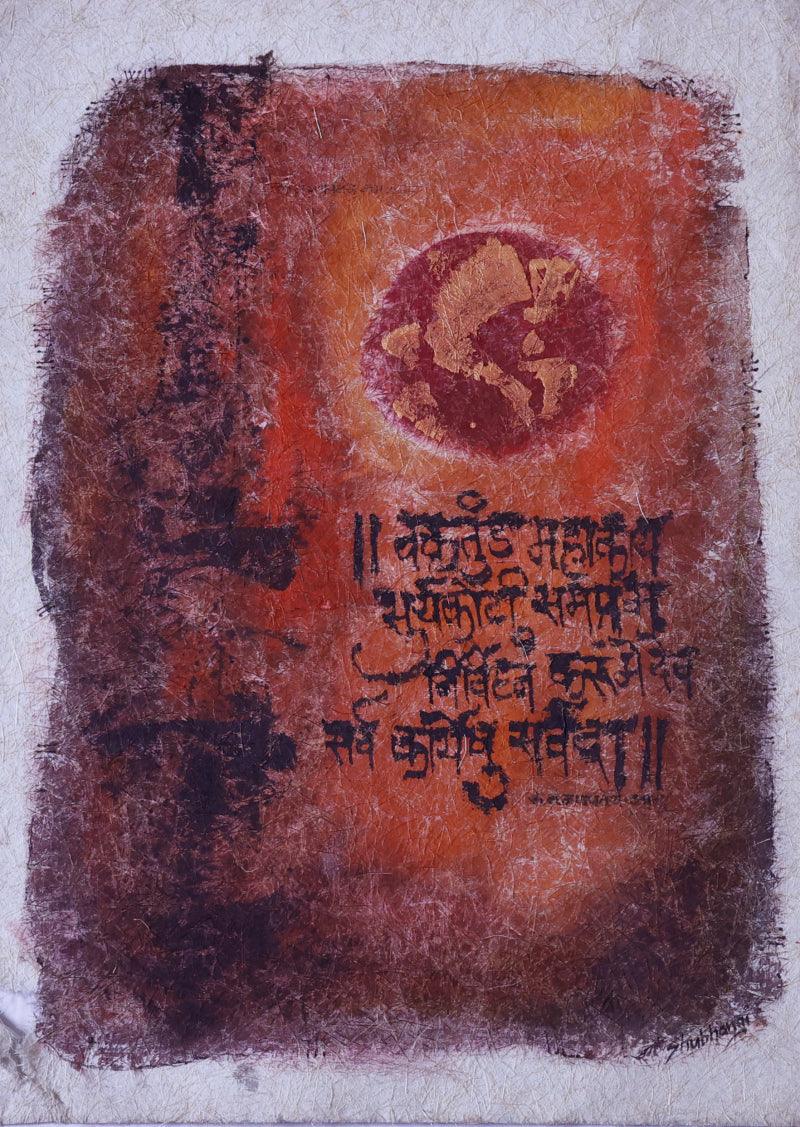 ॥ वक्रतुंड महाकाय
सूर्यकोटी समप्रभ
निर्विघ्नं कुरूमेदेव
सर्व कार्येषु सर्वदा ॥
Shubhangi